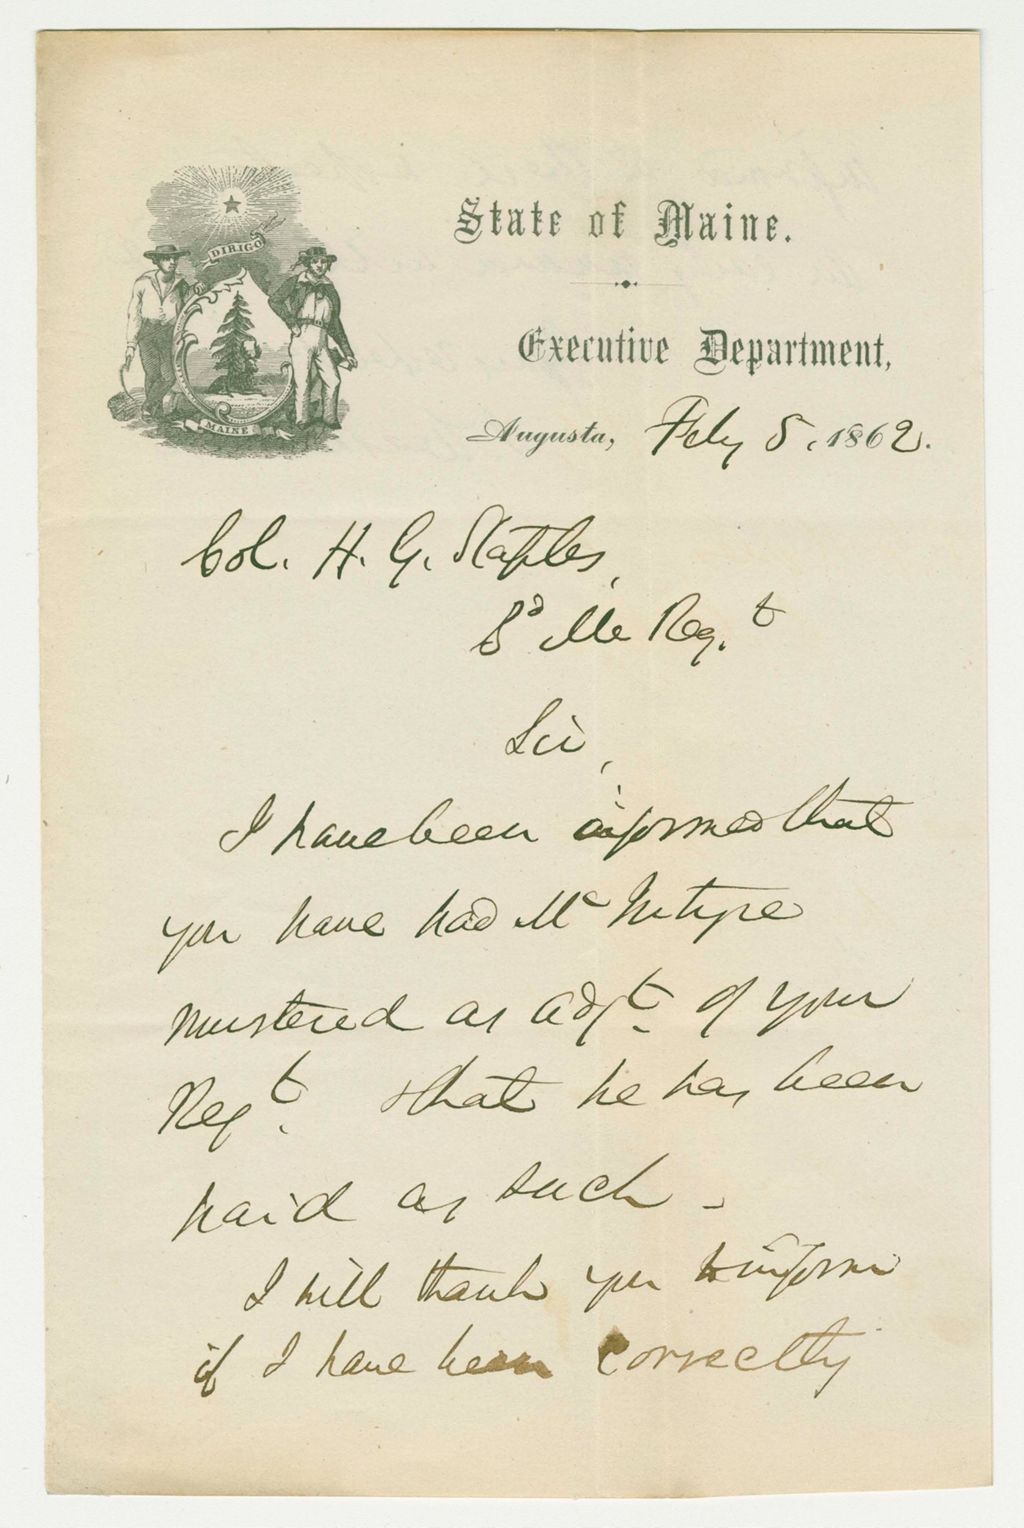 DIRIGO
MAINE
State of Maine.
Executive Department,
Augusta, Feby 8, 1862.
Col. H. G. Staples,
3d Me Regt
Sir,
I have been informed that
you have had McIntyre
mustered as adjt. of your
Regt. & that he has been
paid as such -
I will thank you to inform
if I have been correctly